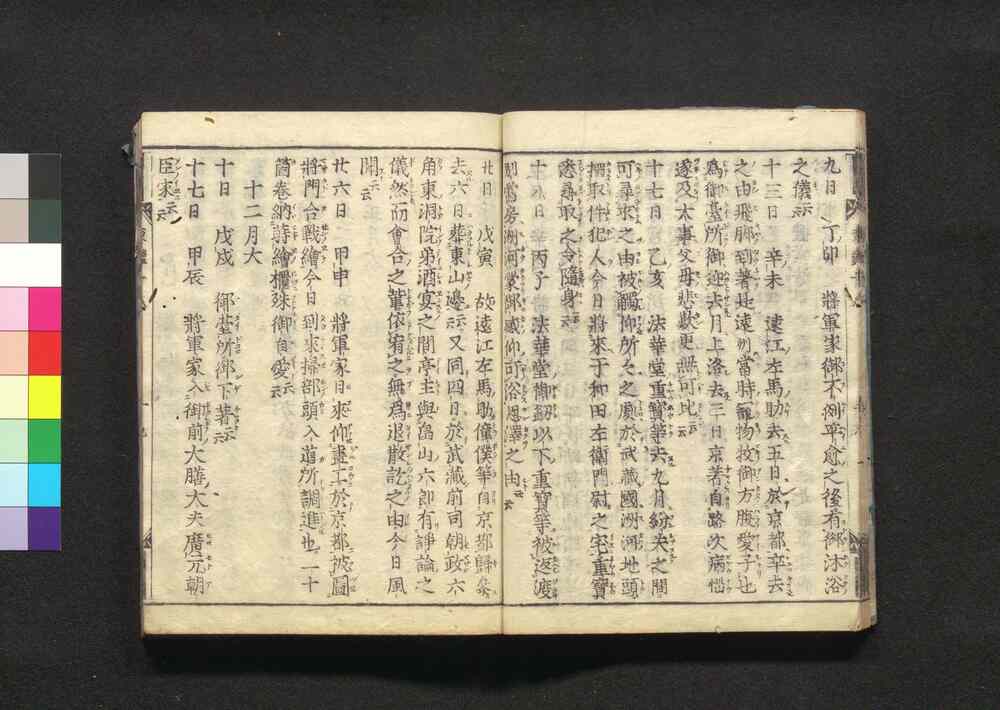 九日 丁卯 將軍家御不例御平愈之後有御沐浴
之儀云云
十三日 辛未 遠江左馬助去五日於京都卒去
之由飛脚到著是遠州當時寵物牧御方腹愛子也
爲御臺所御迎去月上洛去三日京著自路次病惱
遂及大事父母悲歎更無可比云云
十七日 乙亥 法華堂重寶等去九月紛失之間
可尋求之由被觸仰所々之處於武藏國洲河地頭
搦取件犯人今日將來于和田左衞門尉之宅重寶
悉尋取之令隨身云云
十八日 丙子 法華堂御劔以下重寶等被返渡
別當房洲河蒙御感仰可浴恩澤之由云云
廿日 戊寅 故遠江左馬助僮僕等自京都歸參
去六日葬東山邊云云又同四日於武藏前司朝政六
角東洞院弟酒宴之間亭主與畠山六郎有諍論之
儀然而會合之輩依宥之無爲退散訖之由今日風
聞云云
廿六日 甲申 將軍家日來仰畫工於京都被圖
將門合戰繪今日到來掃部頭入道所調進也二十
箇卷納蒔繪櫃殊御自愛云云
十二月大
十日 戊戌 御臺所御下著云云
十七日 甲辰 將軍家入御前大膳大夫廣元朝
臣家云云